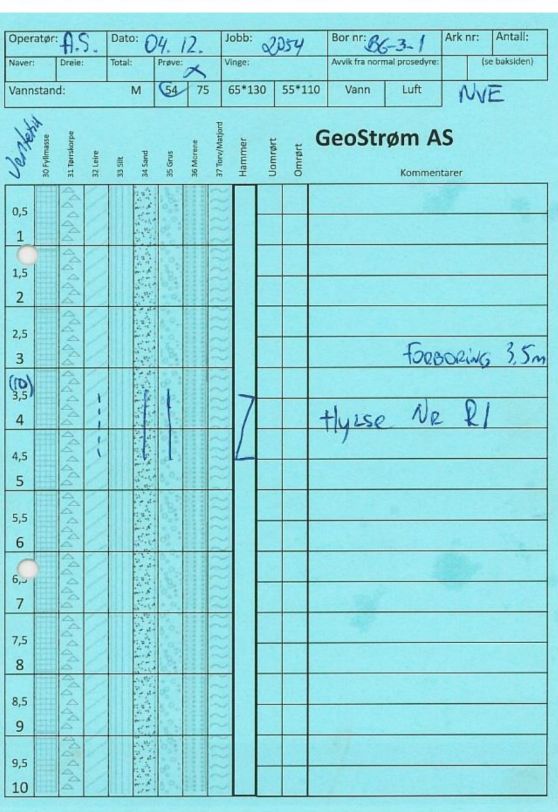 Operatør: A.S. Dato: 04. 12. Jobb: 2054 Bor nr: BG-3-1 Ark nr: Antall:
Naver: Dreie: Total: Prøve: X Vinge: Avvik fra normal prosedyre: (se baksiden)
Vannstand: M 54 75 65*130 55*110 Vann Luft NVE
30 Fyllmasse
31 Tørrskorpe
32 Leire
33 Silt
34 Sand
35 Grus
36 Morene
37 Torv/Matjord
Hammer
Uomrørt
Omrørt
GeoStrøm AS
Kommentarer
0,5
1
1,5
2
2,5
3 FORBORING 3,5m
3,5
4 Hylse NR R1
4,5
5
5,5
6
6,5
7
7,5
8
8,5
9
9,5
10